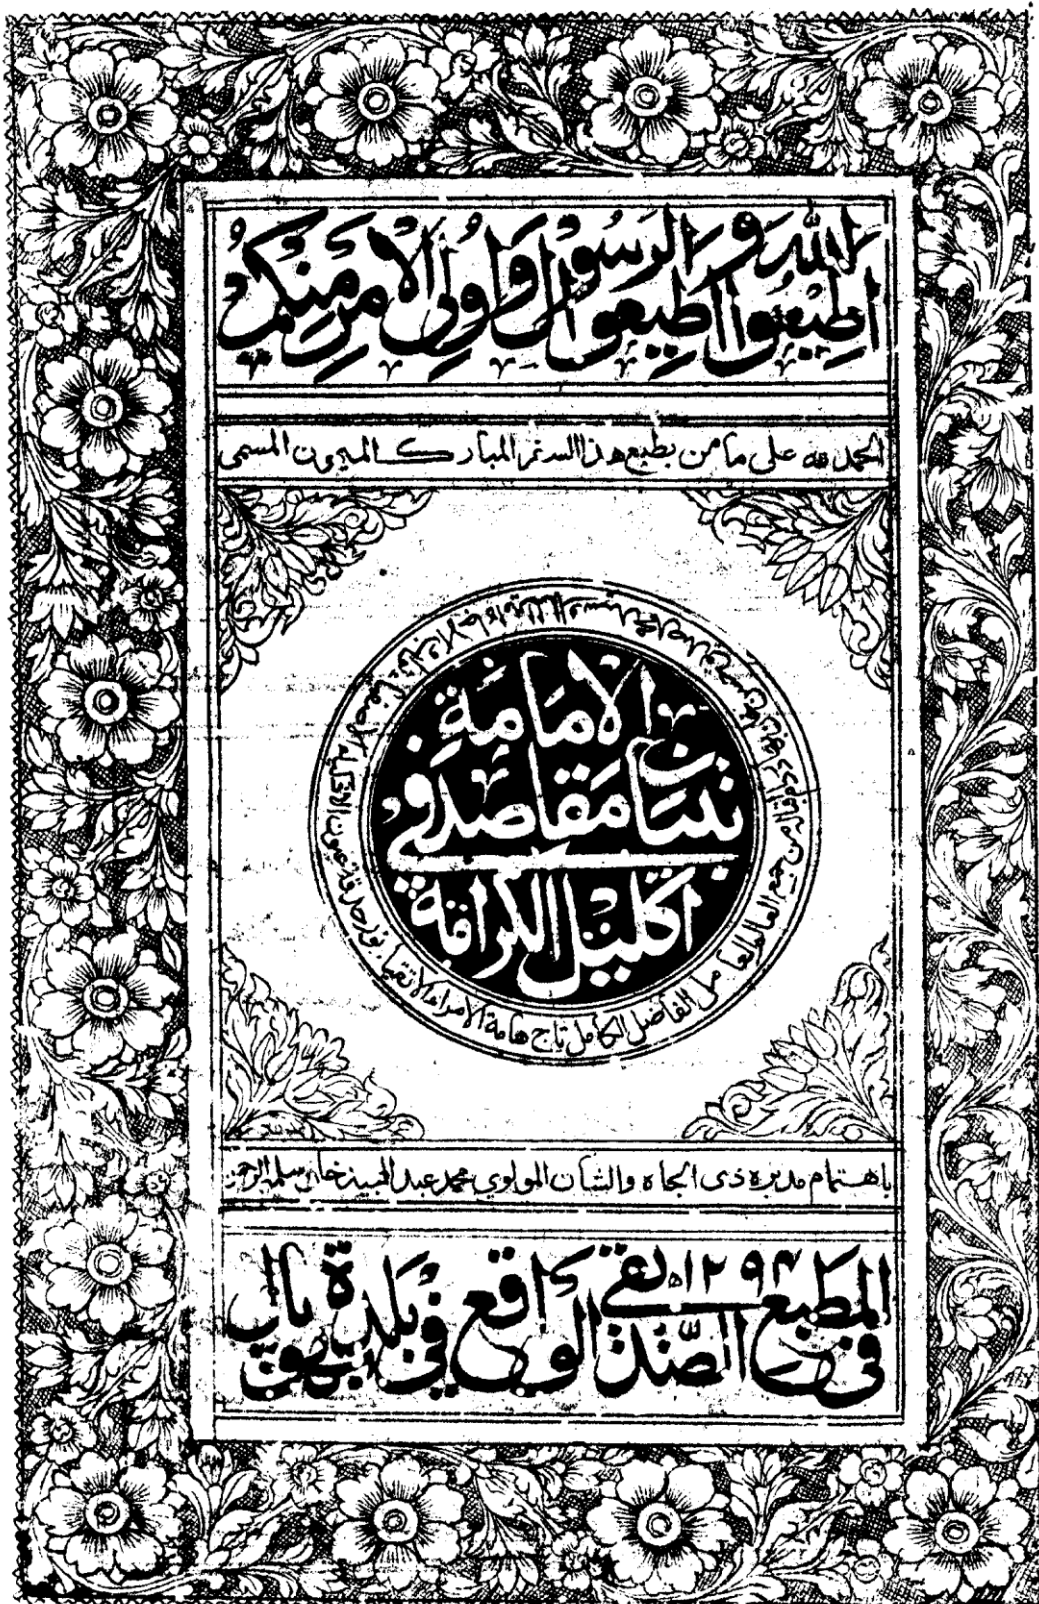 اطيعوا الله و اطيعوا الرسول و اولى الامر منكم
الحمد لله على ما من بطبع هذا السفر المبارك الميمون المسمى
اكليل الكرامة
في تبيان مقاصد
الامامة
العالم العامل الفاضل الكامل تاج هامة الامراء الاتقياء نور حدقة عيون
باهتمام مديره ذى الجاه والشان المولوي محمد عبد المجيد خان سلمه الرحمن
في المطبع الصديقى الواقع في بلدة بهوپال
۱۲۹۴ه